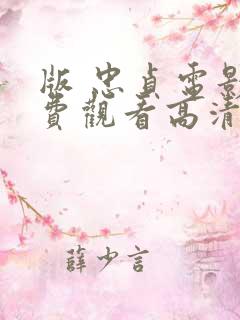 版 忠貞電影
費觀看高清
薛少言